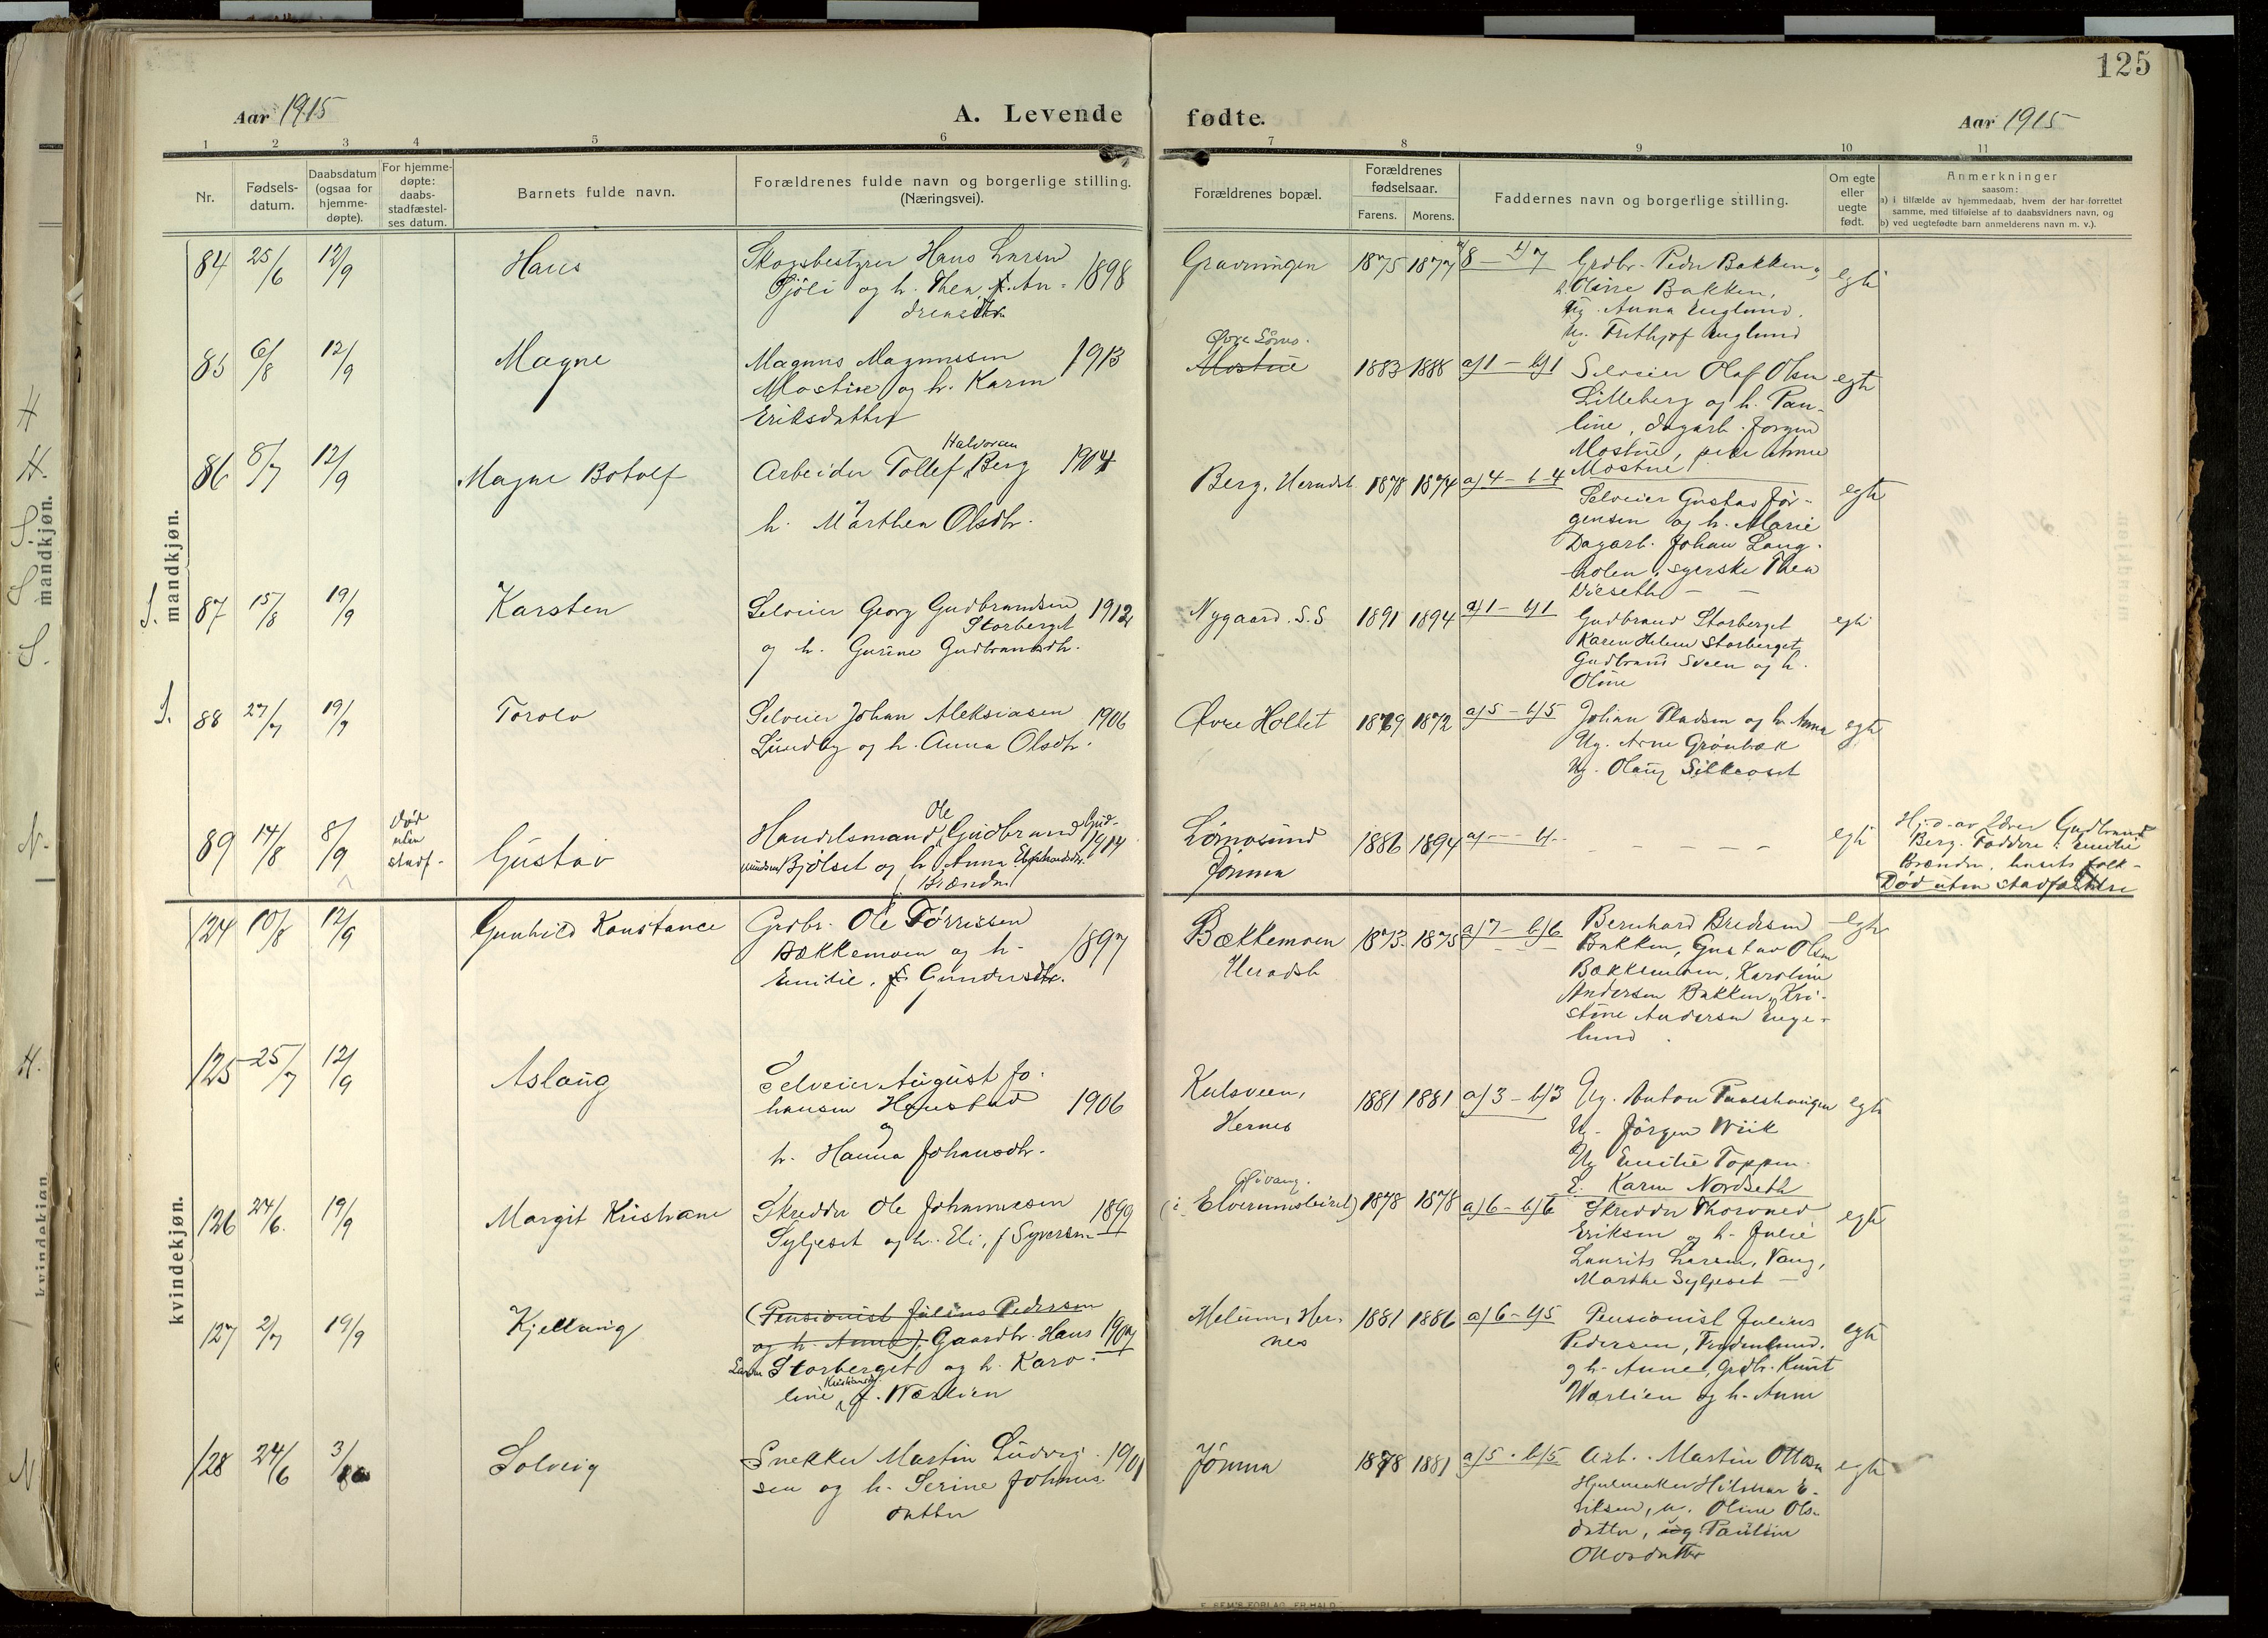 125
Aar 1915
A. Levende
fødte.
Aar 1915
1 2 3 4 5 6 7 8 9 10 11
Nr.
Fødsels-
datum.
Daabsdatum
(ogsaa for
hjemme-
døpte).
For hjemme-
døpte:
daabs-
stadfæstel-
ses datum.
Barnets fulde navn.
Forældrenes fulde navn og borgerlige stilling.
(Næringsvei).
Forældrenes bopæl.
Forældrenes
fødselsaar.
Farens. Morens.
Faddernes navn og borgerlige stilling.
Om egte
eller
uegte
født.
Anmerkninger
saasom:
a) i tilfælde av hjemmedaab, hvem der har forrettet
samme, med tilføielse af to daabsvidners navn, og
b) ved uegtefødte barn anmelderens navn m. v.).
mandkjøn.
84 25/6 12/9 Hans
Skogsbestyrer Hans Larsen
Sjøli og h. Thea, f. An-
dreasdtr. 1898
Gravningen 1875 1877 8 - b)7
Grdbr. Peder Bakken og
h. Oline Bakken,
Ug. Anna Englund.
U. Frithjof Englund
egte
85 6/8 12/9 Magne
Magnus Magnussen
Mostue og h. Karen
Eriksdatter 1913
Øvre Sørns.
Mostue
1883 1888 a)1 - b)1
Selveier Olaf Olsen
Lilleberg og h. Pau-
line, dagarb. Jørgen
Mostue, pike Anne
Mostue
egte
86 8/7 12/9 Magne Botolf
Arbeider Tollef Halvorsen Berg 1904
og
h. Marthea Olsdtr.
Berg, Heradsb. 1878 1874 a)4 - b-4
Selveier Gustav Jør-
gensen og h. Marie
Dagarb. Johan Lang-
holen, syerske Thea
Dieseth
egte
S. 87 15/8 19/9 Karsten
Selveier Georg Gudbrandsen 1912
Storberget
og h. Gurine Gudbrandsdtr.
Nygaard. S.S 1891 1894 a)1 - b)1
Gudbrand Storberget
Karen Helene Storberget
Gudbrand Sveen og h.
Oline
egte
S. 88 27/7 19/9 Torolv
Selveier Johan Aleksiasen 1906
Lundby og h. Anna Olsdtr.
Øvre Holtet 1869 1872 a)5 - b)5
Johan Pladsen og h. Anna
Ug. Arne Grønbæk
Ug. Olaug Silkeoset
egte
89 14/8 8/9
død
uten
stadf.
Gustav
Handelsmand Ole Gudbrand Gud-
mundsen Bjølset og h. Anna
Brænden 1914
Sørnosund
Jømna
1886 1894 a) - b) -
egte
Hj.d. av lærer Gudbrand
Berg. Faddere: Emilie
Brænden, husets folk -
Død uten stadfæstelse
kvindekjøn.
124 10/8 12/9 Gunhild Konstance
Grdbr. Ole Tørrissen
Bækkemoen og h.
Emilie, f. Gundersdtr. 1897
Bækkemoen
Heradsb.
1873. 1875 a)7 - b)6
Bernhard Bredesen
Bakken, Gustav Olsen
Bækkemoen, Karoline
Andersen Bakken, Kri-
stine Andersen Enge-
lund.
egte
125 25/7 12/9 Aslaug
Selveier August Jo-
hansen Haustad 1906
og
h. Hanna Johansdtr.
Kulsveen,
Hernes
1881 1881 a)3 - b)3
Ug. Anton Paaeshaugen
Ug. Jørgen Wiik
Ug Emilie Toppen
E. Karen Nordseth
egte
126 24/6. 19/9 Margit Kristiane
Skredder Ole Johannesen 1899
Syljeset og h. Eli, f Syversen
Glivang.
(i Elverumsleiret) 1878 1878 a)6 - b)6
Skredder Thorvald
Eriksen og h. Julie
Laurits Larsen, Vang,
Marthe Syljeset
egte
127 2/7 19/9 Kjellaug
(Pensionist Julius Pedersen
og h. Anne), Gaardbr. Hans 1907
Larsen Storberget og h. Karo-
line Kristiansdtr. f. Wærlien
Melum, Her-
nes
1881 1886 a)6 - b)5
Pensionist Julius
Pedersen, Frydenlund.
og h. Anne, Grdbr. Knut
Wærlien og h. Anne
egte
128 24/6 3/10 Solveig
Snekker Martin Ludvig- 1901
sen og h. Serine Johans-
datter
Jømna 1878 1881 a)5 - b)5
Arb. Martin Ottosen
Hjulmaker Hilmar E-
riksen, u. Oline Ols-
datter, ug Pauline
Ottosdatter
egte
E. SEM'S FORLAG, FR.HALD.